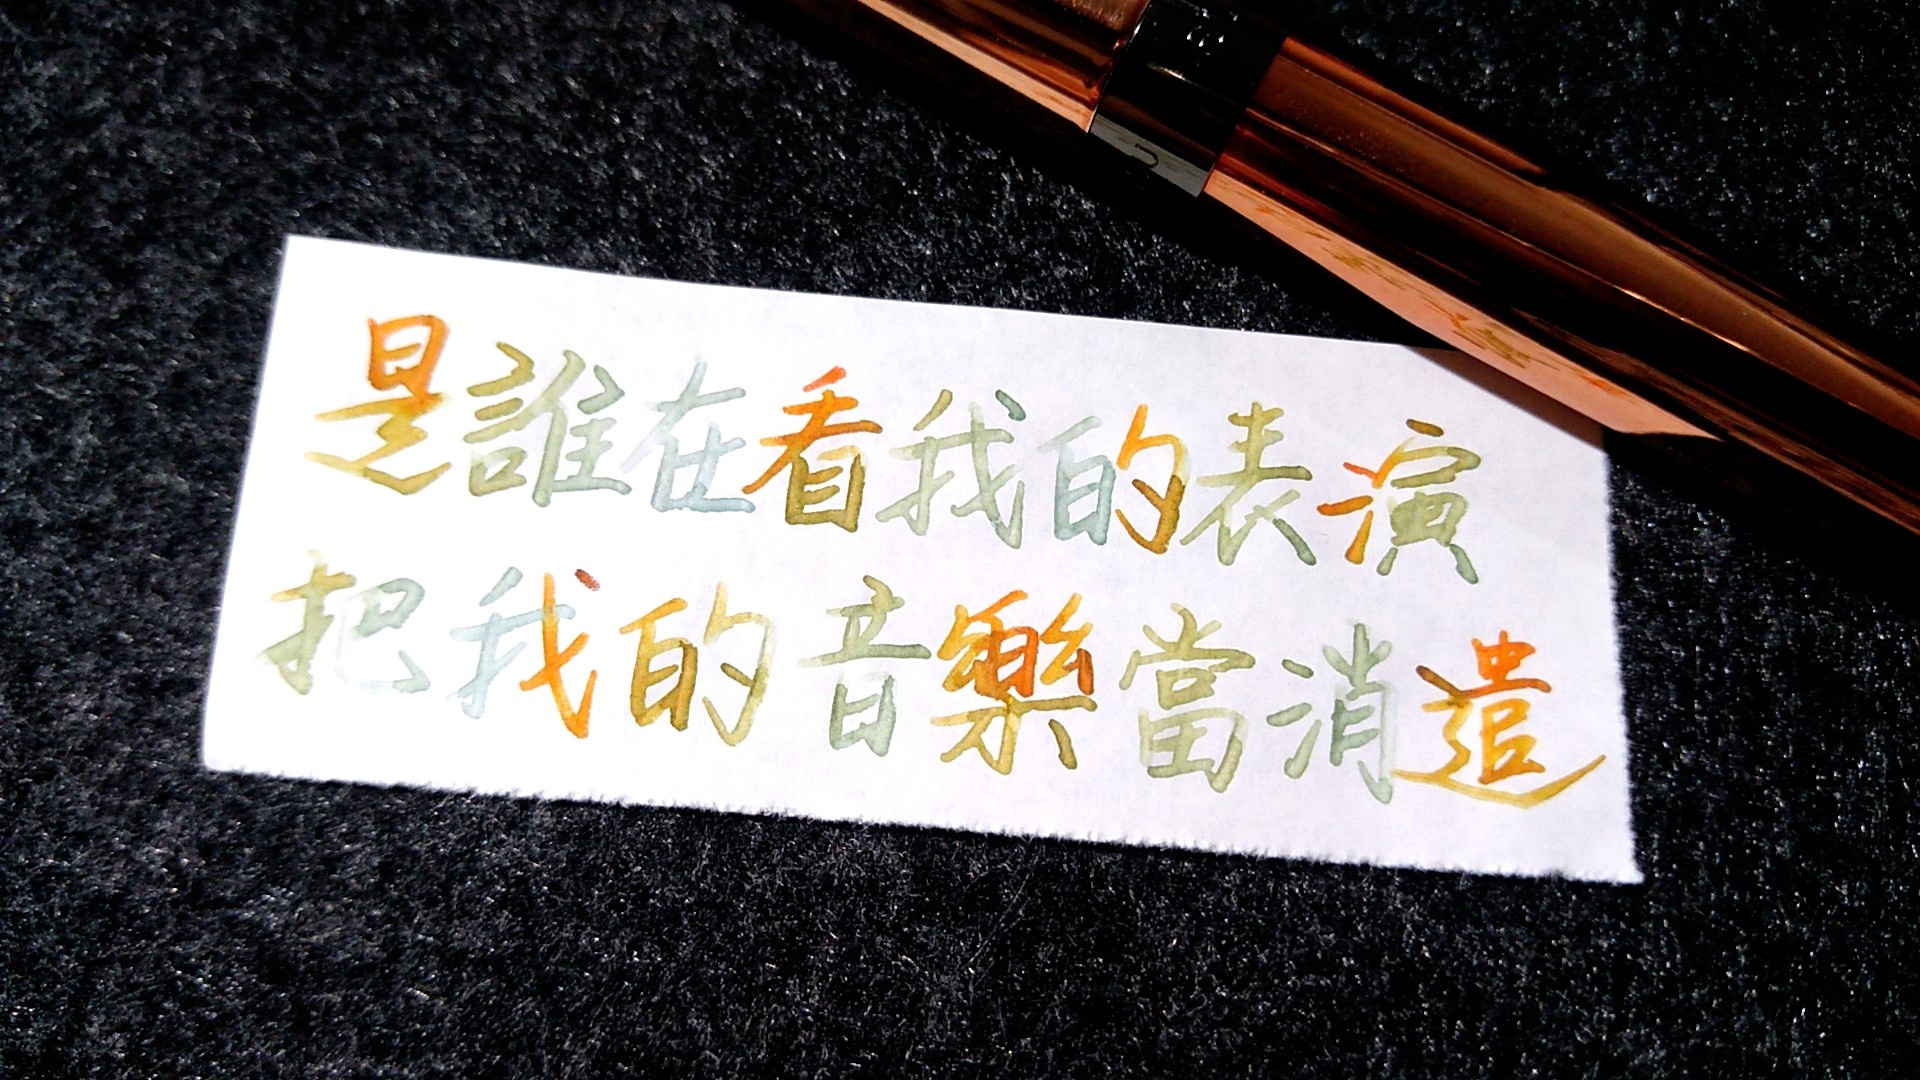 是誰在看我的表演
把我的音樂當消遣